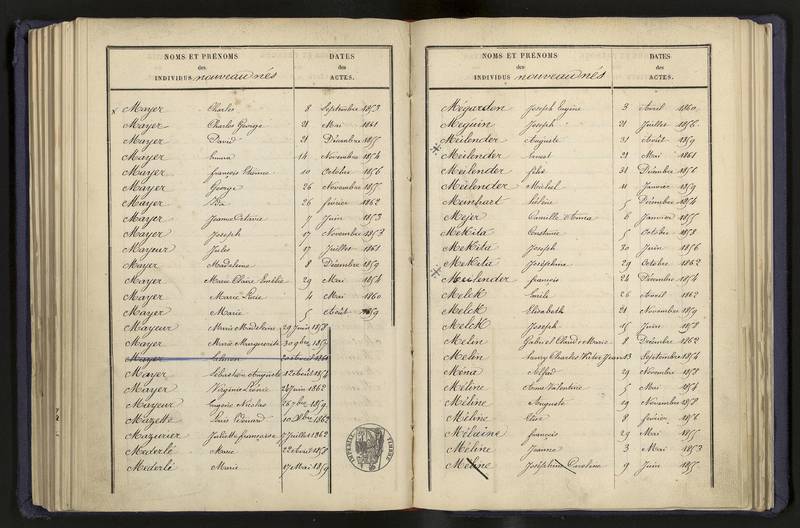 NOMS ET PRÉNOMS
des
INDIVIDUS nouveau nés
DATES
des
ACTES.
Mayer Charles 8 Septembre 1853
Mayer Charles George 21 Mai 1861
Mayer David 21 Décembre 1855
Mayer Emma 14 Novembre 1854
Mayer françois Etienne 10 Octobre 1856
Mayer George 26 Novembre 1855
Mayer 26 février 1862
Mayer Jeanne Octavie 7 Juin 1853
Mayer Joseph 17 Novembre 1853
Mayeur Jules 17 Juillet 1861
Mayer Madeleine 8 Décembre 1859
Mayer Marie Claire Emélie 29 Mai 1854
Mayer Marie Lucie 4 Mai 1860
Mayer Marie 5 Août 1859
Mayeur Marie Madeleine 29 Juin 1858
Mayer Marie Marguerite 30 9bre
Mayer 20 Août
Mayer Sébastien Auguste 12 Août 1854
Mayer Virginie 28 Juin 1862
Mayeur Eugène Nicolas 26 7bre 1859
Mazette Louis Edouard 10 Xbre 1862
Mazurier Juliette françoise 7 Juillet 1862
Mederlé Marie 22 Avril 1858
Mederlé Marie 17 Mai 1859
NOMS ET PRÉNOMS
des
INDIVIDUS nouveau nés
DATES
des
ACTES.
Mégardon Joseph Eugène 3 Avril 1860
Meguin Joseph 21 Juillet 1856
Meilender Auguste 31 Août 1859
Meilender Ernest 21 Mai 1861
Meilender félix 31 Décembre 1856
Meilender Michel 11 Janvier 1859
Meinhart Hélène 5 Décembre 1854
Mejer Camille 6 Janvier 1855
Mekita Constance 5 Octobre 1858
Mekita Joseph 20 Juin 1856
Mekita Joséphine 29 Octobre 1862
Meilender françois 24 Décembre 1854
Melck Emile 26 Avril 1862
Melck Elisabeth 21 Novembre 1859
Melck Joseph 15 Juin 1858
Melin Gabriel Claude Marie 8 Décembre 1862
Melin henry Charles Victor Jean 13 Septembre 1854
Meina Alfred 29 Novembre 1858
Méline Anne Valentine 5 Mai 1854
Méline Auguste 29 Novembre 1858
Méline 8 février 1856
Mélaine françois 29 Mai 1855
Méline Jeanne 3 Mai 1853
Méline Joséphine Caroline 9 Juin 1855